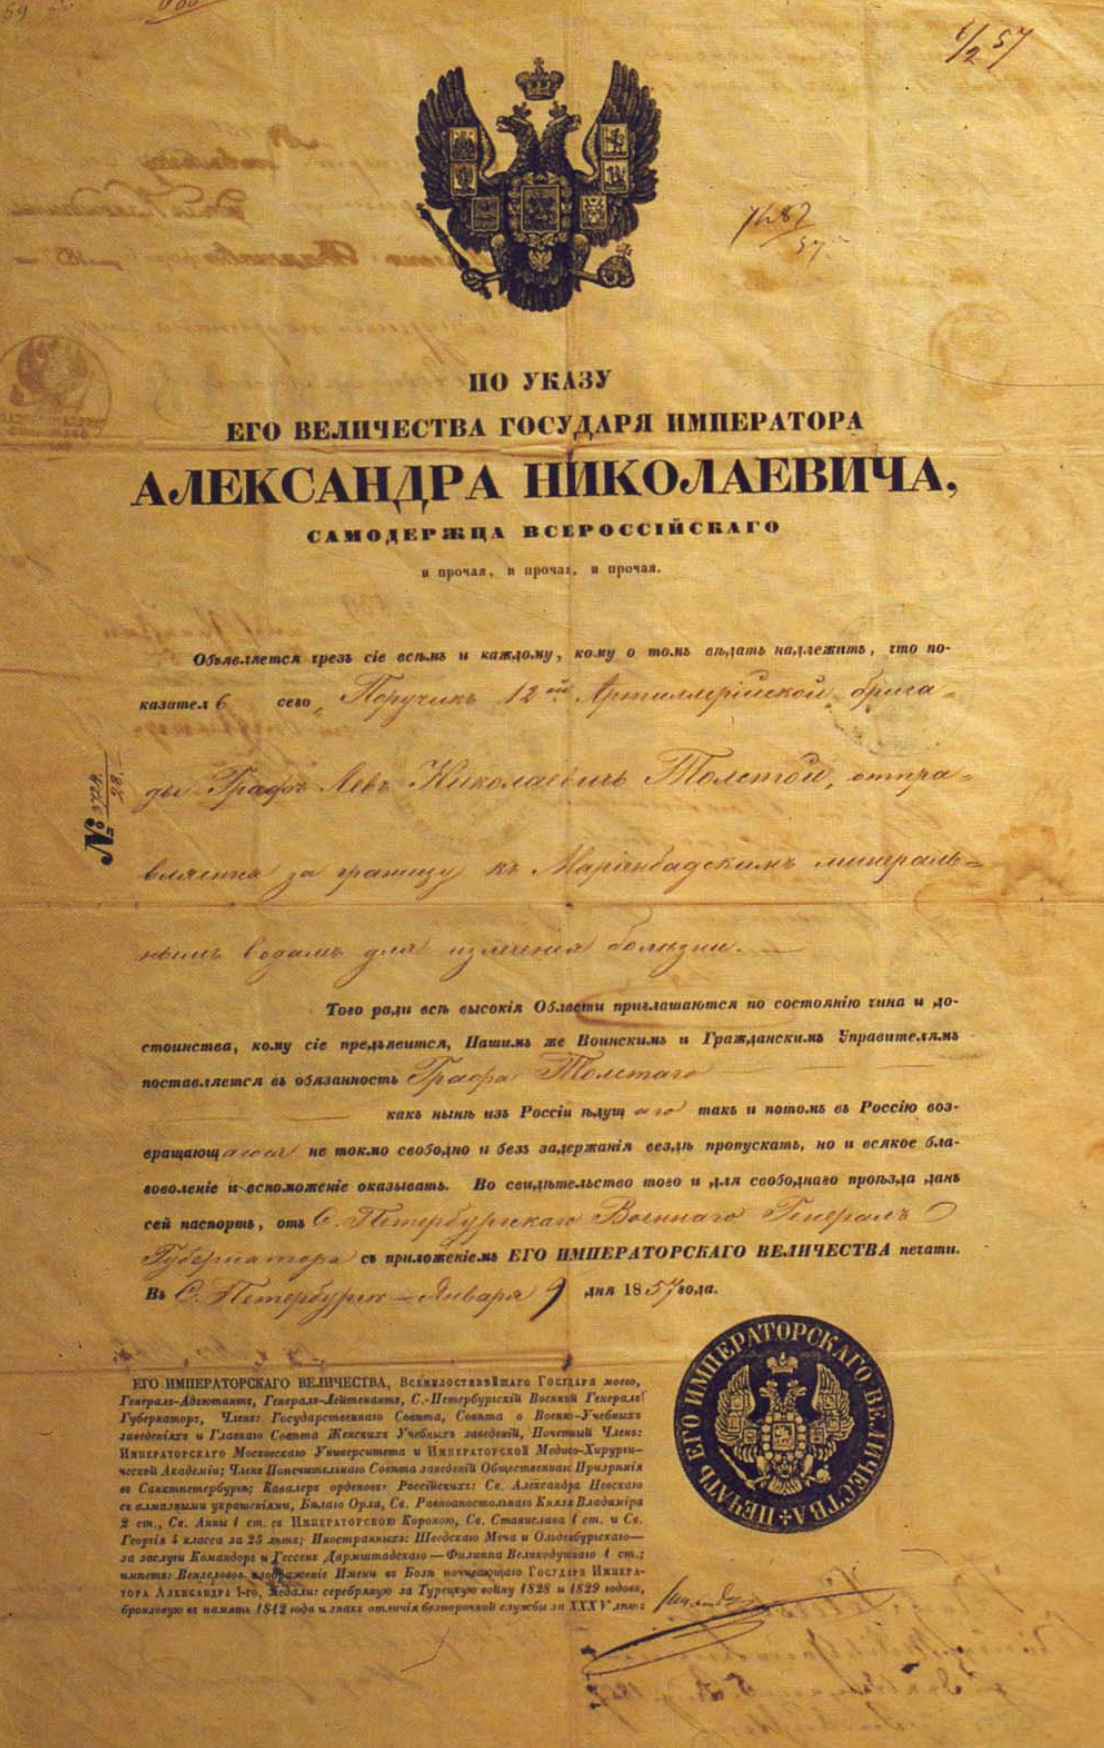 59
6/2 57
7487/57
ПО УКАЗУ
ЕГО ВЕЛИЧЕСТВА ГОСУДАРЯ ИМПЕРАТОРА
АЛЕКСАНДРА НИКОЛАЕВИЧА,
САМОДЕРЖЦА ВСЕРОССІЙСКАГО
и прочая, и прочая, и прочая.
Объявляется чрезъ сіе всѣмъ и каждому, кому о томъ вѣдать надлежитъ, что по-
казателѣ сего, Поручикъ 12ой Артиллерійской брига=
ды Графъ Левъ Николаевичъ Толстой, отпра=
№
вляется за границу къ Маріенбадскимъ минераль=
нымъ водамъ для излеченія болѣзни. —
Того ради всѣ высокія Области приглашаются по состоянію чина и до-
стоинства, кому сіе предъявится, Нашимъ же Воинскимъ и Гражданскимъ Управителямъ
поставляется въ обязанность Графа Толстаго
какъ нынѣ изъ Россіи ѣдущаго такъ и потомъ въ Россію воз-
вращающагося не токмо свободно и безъ задержанія вездѣ пропускать, но и всякое бла-
говоленіе и вспоможеніе оказывать. Во свидѣтельство того и для свободнаго проѣзда данъ
сей паспортъ, отъ С. Петербургскаго Военнаго Генералъ
Губернатора съ приложеніемъ ЕГО ИМПЕРАТОРСКАГО ВЕЛИЧЕСТВА печати.
Въ С. Петербургѣ — Января 9 дня 1857 года.
ЕГО ИМПЕРАТОРСКАГО ВЕЛИЧЕСТВА, Всемилостивѣйшаго Государя моего,
Генералъ-Адъютантъ, Генералъ-Лейтенантъ, С.-Петербургскій Военный Генералъ
Губернаторъ, Членъ: Государственнаго Совѣта, Совѣта о Военно-Учебныхъ
заведеніяхъ и Главнаго Совѣта Женскихъ Учебныхъ заведеній, Почетный Членъ:
Императорскаго Московскаго Университета и Императорской Медико-Хирурги-
ческой Академіи; Членъ Попечительнаго Совѣта заведеній Общественнаго Призрѣнія
въ Санктпетербургѣ; Кавалеръ орденовъ: Россійскихъ: Св. Александра Невскаго
съ алмазными украшеніями, Бѣлаго Орла, Св. Равноапостольнаго Князя Владиміра
2 ст., Св. Анны 1 ст. съ Императорскою Короною, Св. Станислава 1 ст. и Св.
Георгія 4 класса за 25 лѣтъ; Иностранныхъ: Шведскаго Меча и Ольденбургскаго—
за заслуги Командоръ и Гессенъ Дармштадскаго — Филиппа Великодушнаго 1 ст.;
имѣетъ: Вензеловое изображеніе Имени въ Бозѣ почивающаго Государя Импера-
тора Александра 1-го, Медали: серебряную за Турецкую войну 1828 и 1829 годовъ,
бронзовую въ память 1812 года и знакъ отличія безпорочной службы за XXXV лѣтъ:
ПЕЧАТЬ ЕГО ИМПЕРАТОРСКАГО ВЕЛИЧЕСТВА